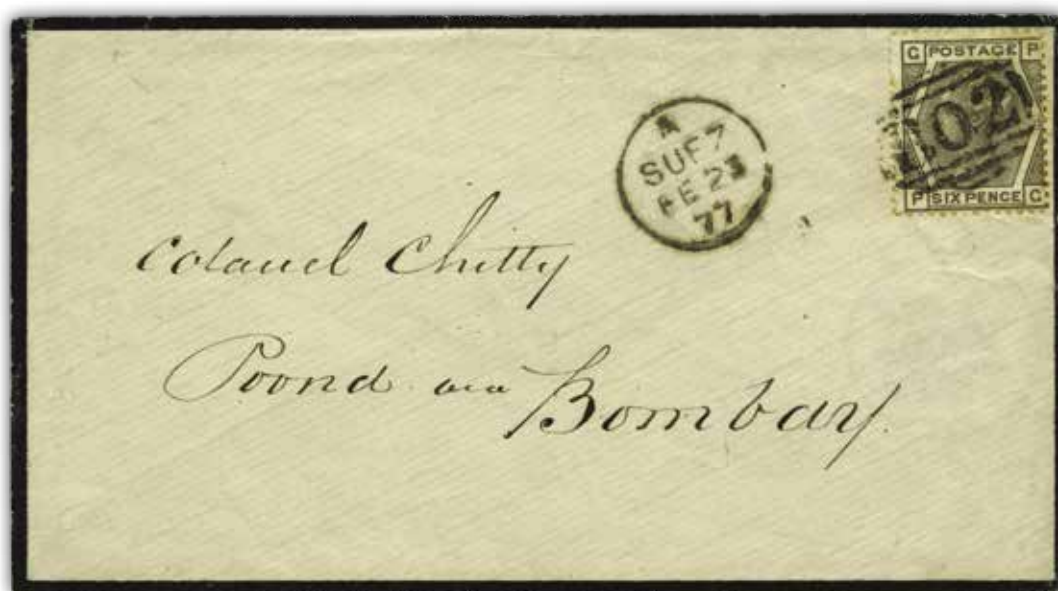 G POSTAGE P
02
P SIX PENCE G
A
SUEZ
FE 23
77
Colonel Chitty
Poona via Bombay.